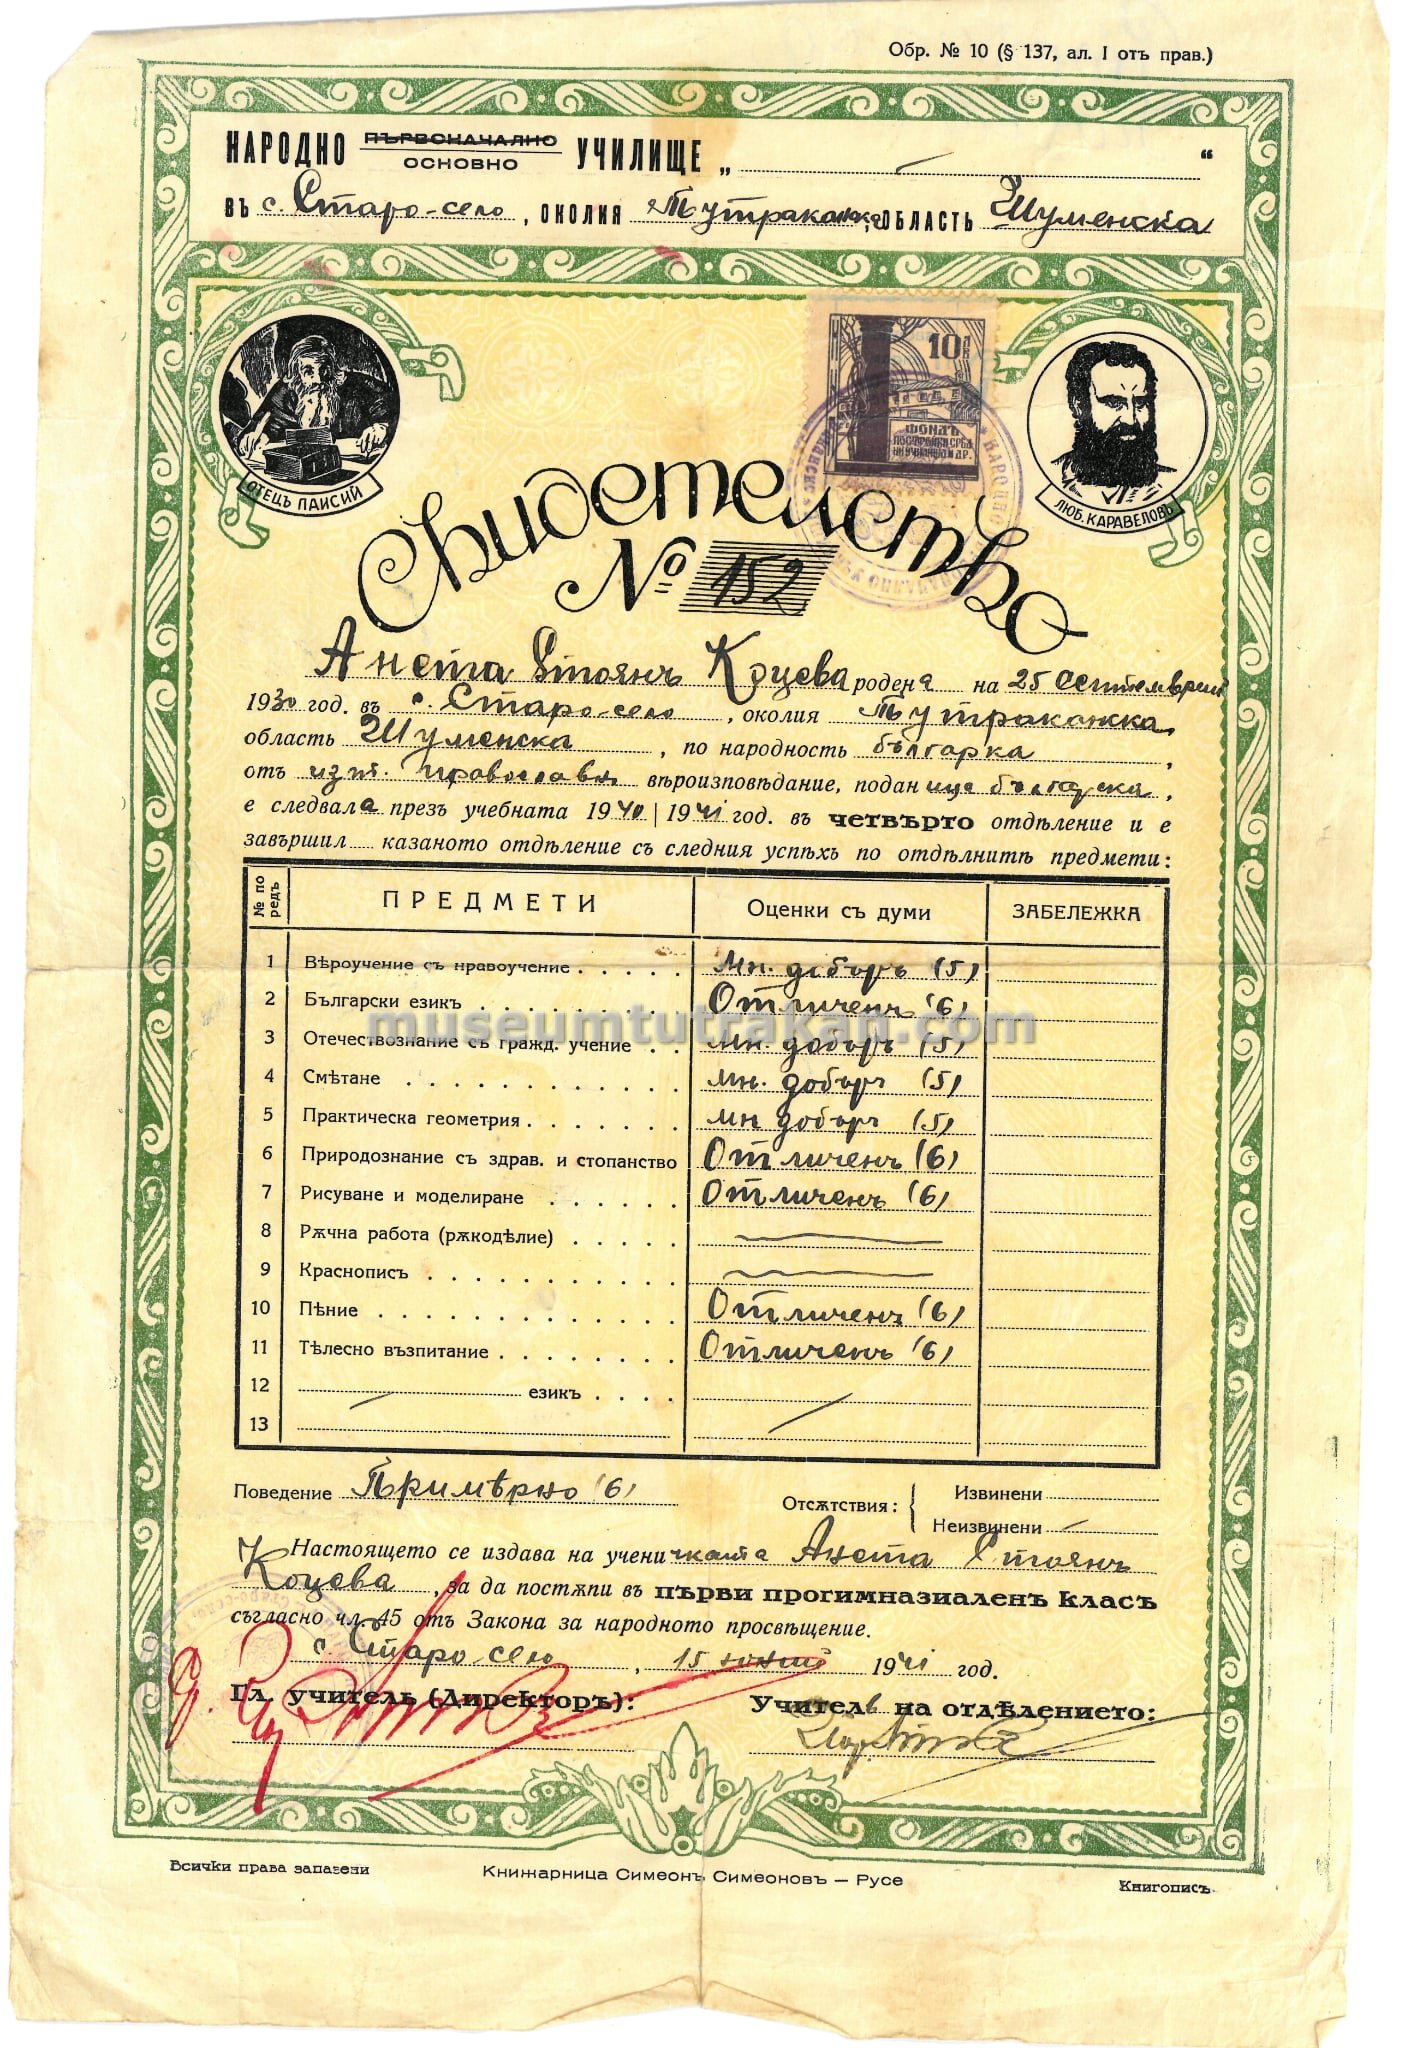 Обр. № 10 (§ 137, ал. I отъ прав.)
НАРОДНО ПЪРВОНАЧАЛНО ОСНОВНО УЧИЛИЩЕ „ — “
въ с. Старо-село, ОКОЛИЯ Тутраканска, ОБЛАСТЬ Шуменска
10 ЛВ
ФОНДЪ
ПОСТРОЙКИ СРЕД.
НИ УЧИЛИЩА И ДР.
ОТЕЦЪ ПАИСИЙ
ЛЮБ. КАРАВЕЛОВЪ
Свидетелство
№ 152
Анета Стоянъ Коцева родена на 25 септемврий
1930 год. въ с. Старо-село, околия Тутраканска,
область Шуменска, по народность българка,
отъ изт. православн вѣроизповѣдание, поданица българска,
е следвала презъ учебната 1940 | 1941 год. въ четвърто отдѣление и е
завършил казаното отдѣление съ следния успѣхъ по отдѣлнитѣ предмети:
№ по редъ ПРЕДМЕТИ Оценки съ думи ЗАБЕЛЕЖКА
1 Вѣроучение съ нравоучение . . . . . Мн. добъръ (5)
2 Български езикъ . . . . . . . . . Отличенъ (6)
3 Отечествознание съ гражд. учение . . Мн. добъръ (5)
4 Смѣтане . . . . . . . . . . . . Мн. добъръ (5)
5 Практическа геометрия . . . . . . . Мн добъръ (5)
6 Природознание съ здрав. и стопанство Отличенъ (6)
7 Рисуване и моделиране . . . . . . Отличенъ (6)
8 Рѫчна работа (рѫкодѣлие) . . . . .
9 Краснописъ . . . . . . . . . . .
10 Пѣние . . . . . . . . . . . . . Отличенъ (6)
11 Тѣлесно възпитание . . . . . . . . Отличенъ (6)
12 — езикъ . . . .
13
museumtutrakan.com
Поведение Примѣрно (6)
Отсѫтствия: Извинени
Неизвинени —
Настоящето се издава на ученичката Анета Стоянъ
Коцева, за да постѫпи въ първи прогимназиаленъ класъ
съгласно чл. 45 отъ Закона за народното просвѣщение.
с. Старо-село, 15 юний 1941 год.
Гл. учитель (Директоръ): Учитель на отдѣлението:
Всички права запазени Книжарница Симеонъ Симеоновъ — Русе Книгописъ